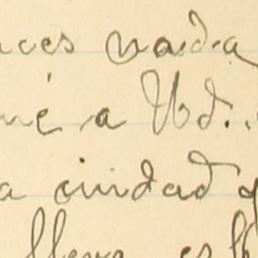 nces nada
mé a Ud.
a ciudad q
lleva es